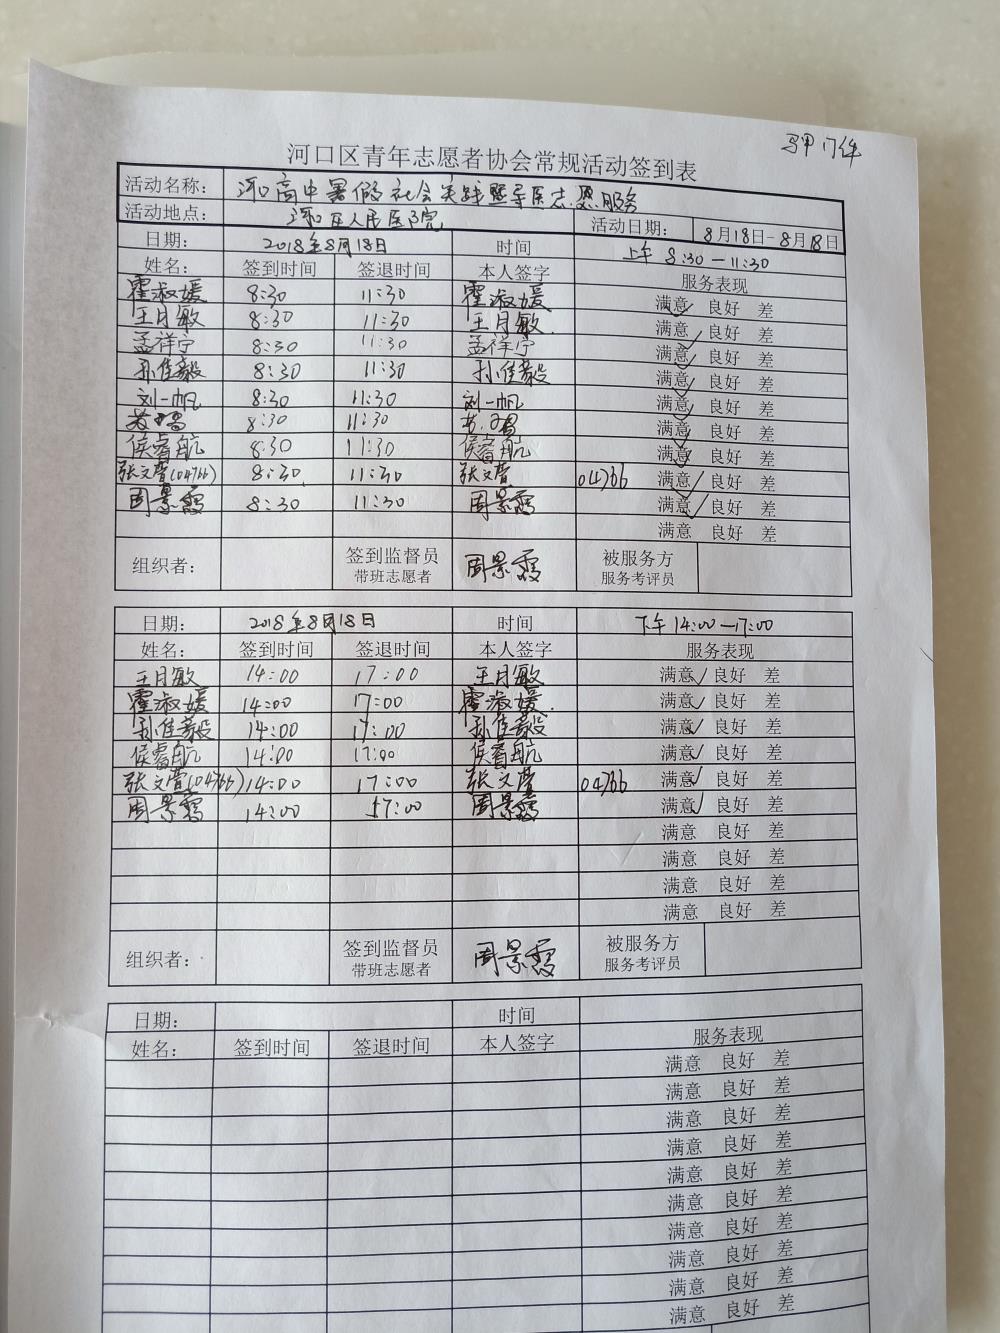 河口区青年志愿者协会常规活动签到表
活动名称: 河口高中暑假社会实践暨导医志愿服务
活动地点: 河口区人民医院 活动日期: 8月18日-8月18日
日期: 2018年8月18日 时间 上午 8:30-11:30
姓名: 签到时间 签退时间 本人签字 服务表现
霍淑媛 8:30 11:30 霍淑媛 满意✓ 良好 差
王月敏 8:30 11:30 王月敏. 满意✓ 良好 差
孟祥宁 8:30 11:30 孟祥宁 满意✓ 良好 差
孙佳毅 8:30 11:30 孙佳毅 满意✓ 良好 差
刘一帆 8:30 11:30 刘一帆 满意✓ 良好 差
8:30 11:30 满意✓ 良好 差
侯睿航 8:30 11:30 侯睿航 满意✓ 良好 差
张文萱(04766) 8:30 11:30 张文萱 04766 满意✓ 良好 差
周景霞 8:30 11:30 周景霞 满意✓ 良好 差
满意 良好 差
组织者: 签到监督员 周景霞 被服务方
带班志愿者 服务考评员
日期: 2018年8月18日 时间 下午 14:00-17:00
姓名: 签到时间 签退时间 本人签字 服务表现
王月敏 14:00 17:00 王月敏 满意✓ 良好 差
霍淑媛 14:00 17:00 霍淑媛. 满意✓ 良好 差
孙佳毅 14:00 17:00 孙佳毅 满意✓ 良好 差
侯睿航 14:00 17:00 侯睿航 满意✓ 良好 差
张文萱(04766) 14:00 17:00 张文萱 04766 满意✓ 良好 差
周景霞 14:00 17:00 周景霞 满意✓ 良好 差
满意 良好 差
满意 良好 差
满意 良好 差
满意 良好 差
组织者: 签到监督员 周景霞 被服务方
带班志愿者 服务考评员
日期: 时间
姓名: 签到时间 签退时间 本人签字 服务表现
满意 良好 差
满意 良好 差
满意 良好 差
满意 良好 差
满意 良好 差
满意 良好 差
满意 良好 差
满意 良好 差
满意 良好 差
满意 良好 差